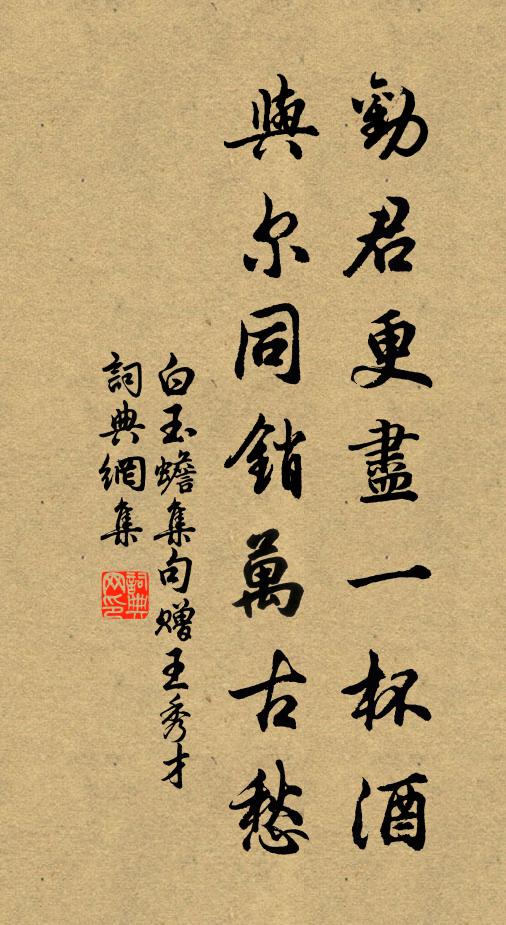 勸君更盡一杯酒
與尔同銷萬古愁
白玉蟾集句贈王秀才
詞典網集
詞典
网印